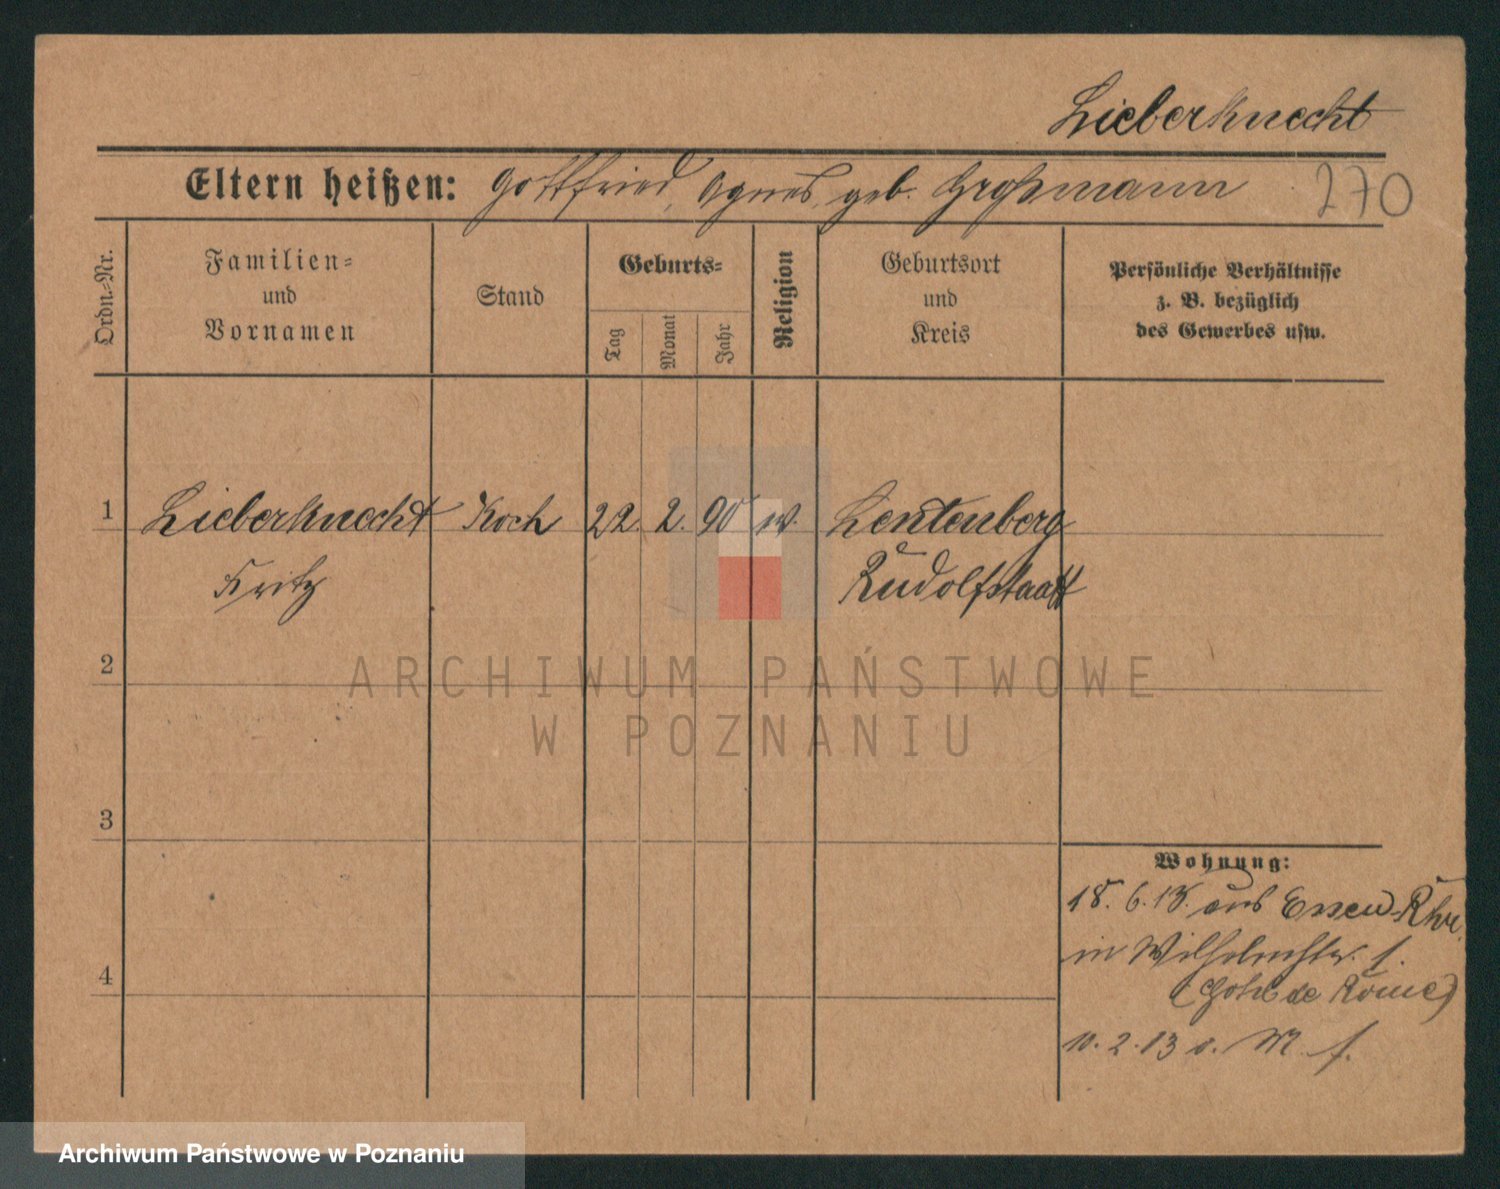 Lieberknecht
Eltern heißen: Gottfried, Agnes, geb. Großmann
270
Ordn.-Nr.
Familien-
und
Vornamen
Stand
Geburts-
Tag
Monat
Jahr
Religion
Geburtsort
und
Kreis
Persönliche Verhältnisse
z. B. bezüglich
des Gewerbes usw.
1 Lieberknecht Koch 22. 2. 90 Leutenberg
Fritz Rudolfstaatt
2
3
4
Wohnung:
aus Essen-Ruhr.
in Wilhelmstr. 1.
(Hotel de Rome)
10. 2. 13
ARCHIWUM PAŃSTWOWE
W POZNANIU
Archiwum Państwowe w Poznaniu